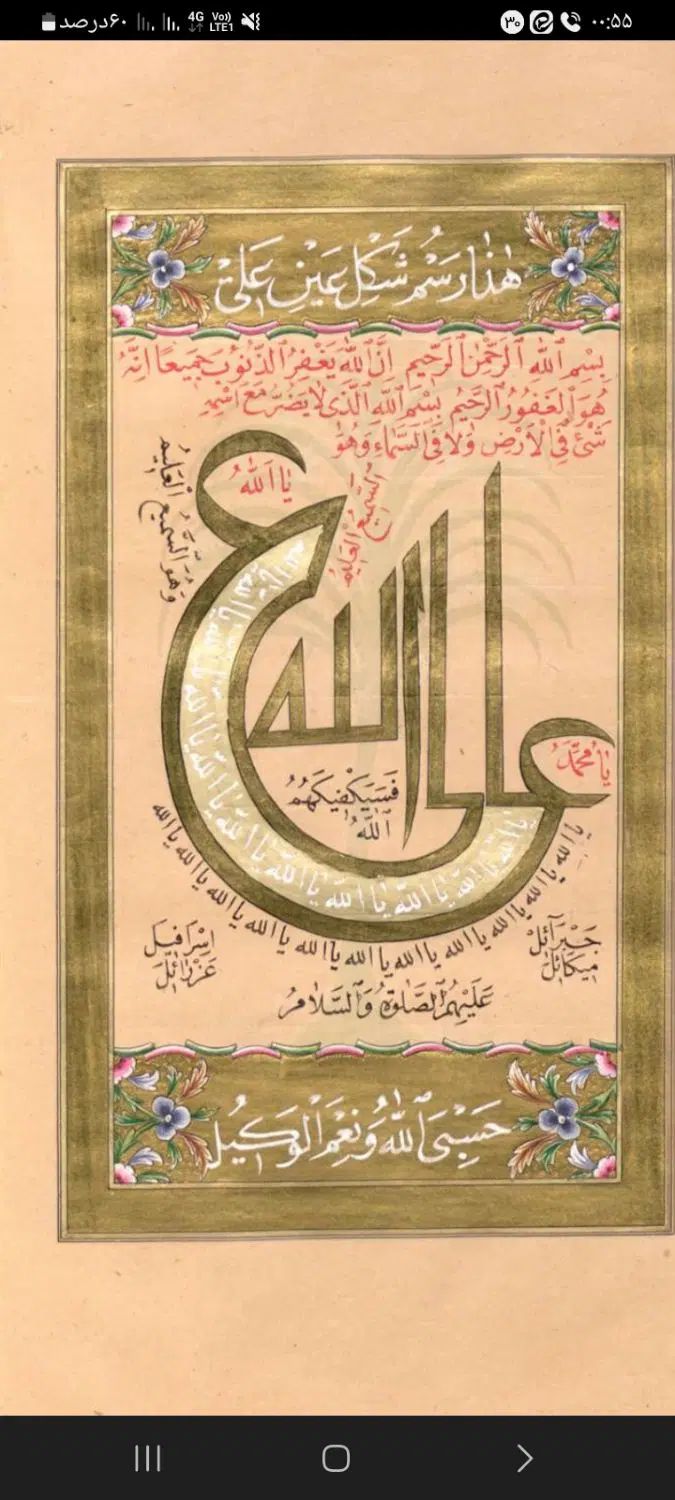 ۶۰درصد
4G
Vo)) LTE1
۳۰
۰۰:۵۵
هٰذا رَسْم شَکِل عَیْن عَلیْ
بِسْمِ اللّٰهِ الرَّحْمٰنِ الرَّحیٖمِ اِنَّ اللّٰهَ یَغْفِرُ الذُّنوُبَ جَمیٖعًا اِنَّهُ
هُوَ الْغَفوُرُ الرَّحیٖمُ بِسْمِ اللّٰهِ الَّذیٖ لٰا یَضُرُّ مَعَ اسْمِهِ
شَیْئ فِی الْاَرْضِ وَلٰا فِی السَّمٰاءِ وَهُوَ
السَّمیٖعُ الْعَلیٖمُ
وَهُوَ السَّمیٖعُ الْعَلیٖم
یٰا اَللّٰهُ
یا الله یا الله یا الله یا الله یا الله یا الله یا الله یا الله یا الله
الله
یٰا مُحَمَّدُ
فَسَیَکْفیٖکَهُمُ
اللّٰهُ
یا الله یا الله یا الله یا الله یا الله یا الله یا الله یا الله یا الله یا الله یا الله یا الله
جَبْرَآئٖل
میٖکٰائٖل
اِسْرٰافیٖل
عَزْرٰائٖل
عَلَیْهِمُ الصَّلوٰةُ وَالسَّلٰامُ
حَسْبِیَ اللّٰهُ وَنِعْمَ الْوَکیٖلُ